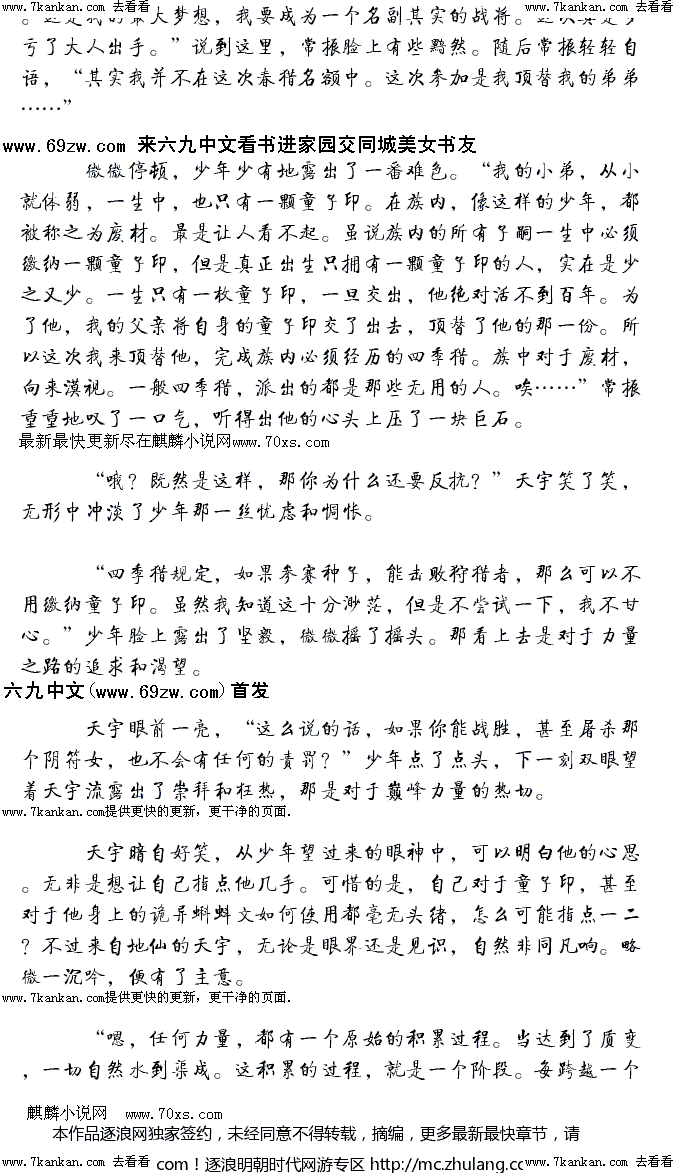 www.7kankan.com 去看看 www.7kankan.com 去看看 www.7kankan.com 去看看 www.7kankan.com 去看看 www.7kankan.com 去看看
。这是我的最大梦想，我要成为一个名副其实的战将。这次真是多
亏了大人出手。”说到这里，常振脸上有些黯然。随后常振轻轻自
语，“其实我并不在这次春猎名额中。这次参加是我顶替我的弟弟
……”
www.69zw.com 来六九中文看书进家园交同城美女书友
微微停顿，少年少有地露出了一番难色。“我的小弟，从小
就体弱，一生中，也只有一颗童子印。在族内，像这样的少年，都
被称之为废材。最是让人看不起。虽说族内的所有子嗣一生中必须
缴纳一颗童子印，但是真正出生只拥有一颗童子印的人，实在是少
之又少。一生只有一枚童子印，一旦交出，他绝对活不到百年。为
了他，我的父亲将自身的童子印交了出去，顶替了他的那一份。所
以这次我来顶替他，完成族内必须经历的四季猎。族中对于废材，
向来漠视。一般四季猎，派出的都是那些无用的人。唉……”常振
重重地叹了一口气，听得出他的心头上压了一块巨石。
最新最快更新尽在麒麟小说网www.70xs.com
“哦？既然是这样，那你为什么还要反抗？”天宇笑了笑，
无形中冲淡了少年那一丝忧虑和惆怅。
“四季猎规定，如果参赛种子，能击败狩猎者，那么可以不
用缴纳童子印。虽然我知道这十分渺茫，但是不尝试一下，我不甘
心。”少年脸上露出了坚毅，微微摇了摇头。那看上去是对于力量
之路的追求和渴望。
六九中文(www.69zw.com)首发
天宇眼前一亮，“这么说的话，如果你能战胜，甚至屠杀那
个阴符女，也不会有任何的责罚？”少年点了点头，下一刻双眼望
着天宇流露出了崇拜和狂热，那是对于巅峰力量的热切。
www.7kankan.com提供更快的更新，更干净的页面.
天宇暗自好笑，从少年望过来的眼神中，可以明白他的心思
。无非是想让自己指点他几手。可惜的是，自己对于童子印，甚至
对于他身上的诡异蝌蚪文如何使用都毫无头绪，怎么可能指点一二
？不过来自地仙的天宇，无论是眼界还是见识，自然非同凡响。略
微一沉吟，便有了主意。
www.7kankan.com提供更快的更新，更干净的页面.
“嗯，任何力量，都有一个原始的积累过程。当达到了质变
，一切自然水到渠成。这积累的过程，就是一个阶段。每跨越一个
麒麟小说网 www.70xs.com
本作品逐浪网独家签约，未经同意不得转载，摘编，更多最新最快章节，请
www.7kankan.com 去看看 com！逐浪明朝时代网游专区 http://mc.zhulang.co www.7kankan.com 去看看